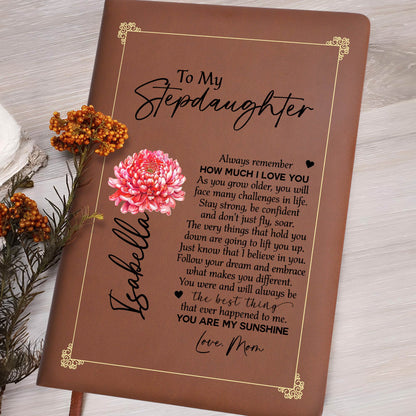 To My
Stepdaughter
Always remember
HOW MUCH I LOVE YOU
As you grow older, you will
face many challenges in life.
Stay strong, be confident
and don't just fly, soar.
The very things that hold you
down are going to lift you up.
Just know that I believe in you.
Follow your dream and embrace
what makes you different.
You were and will always be
the best thing
that ever happened to me.
YOU ARE MY SUNSHINE
Love, Mom
Isabella